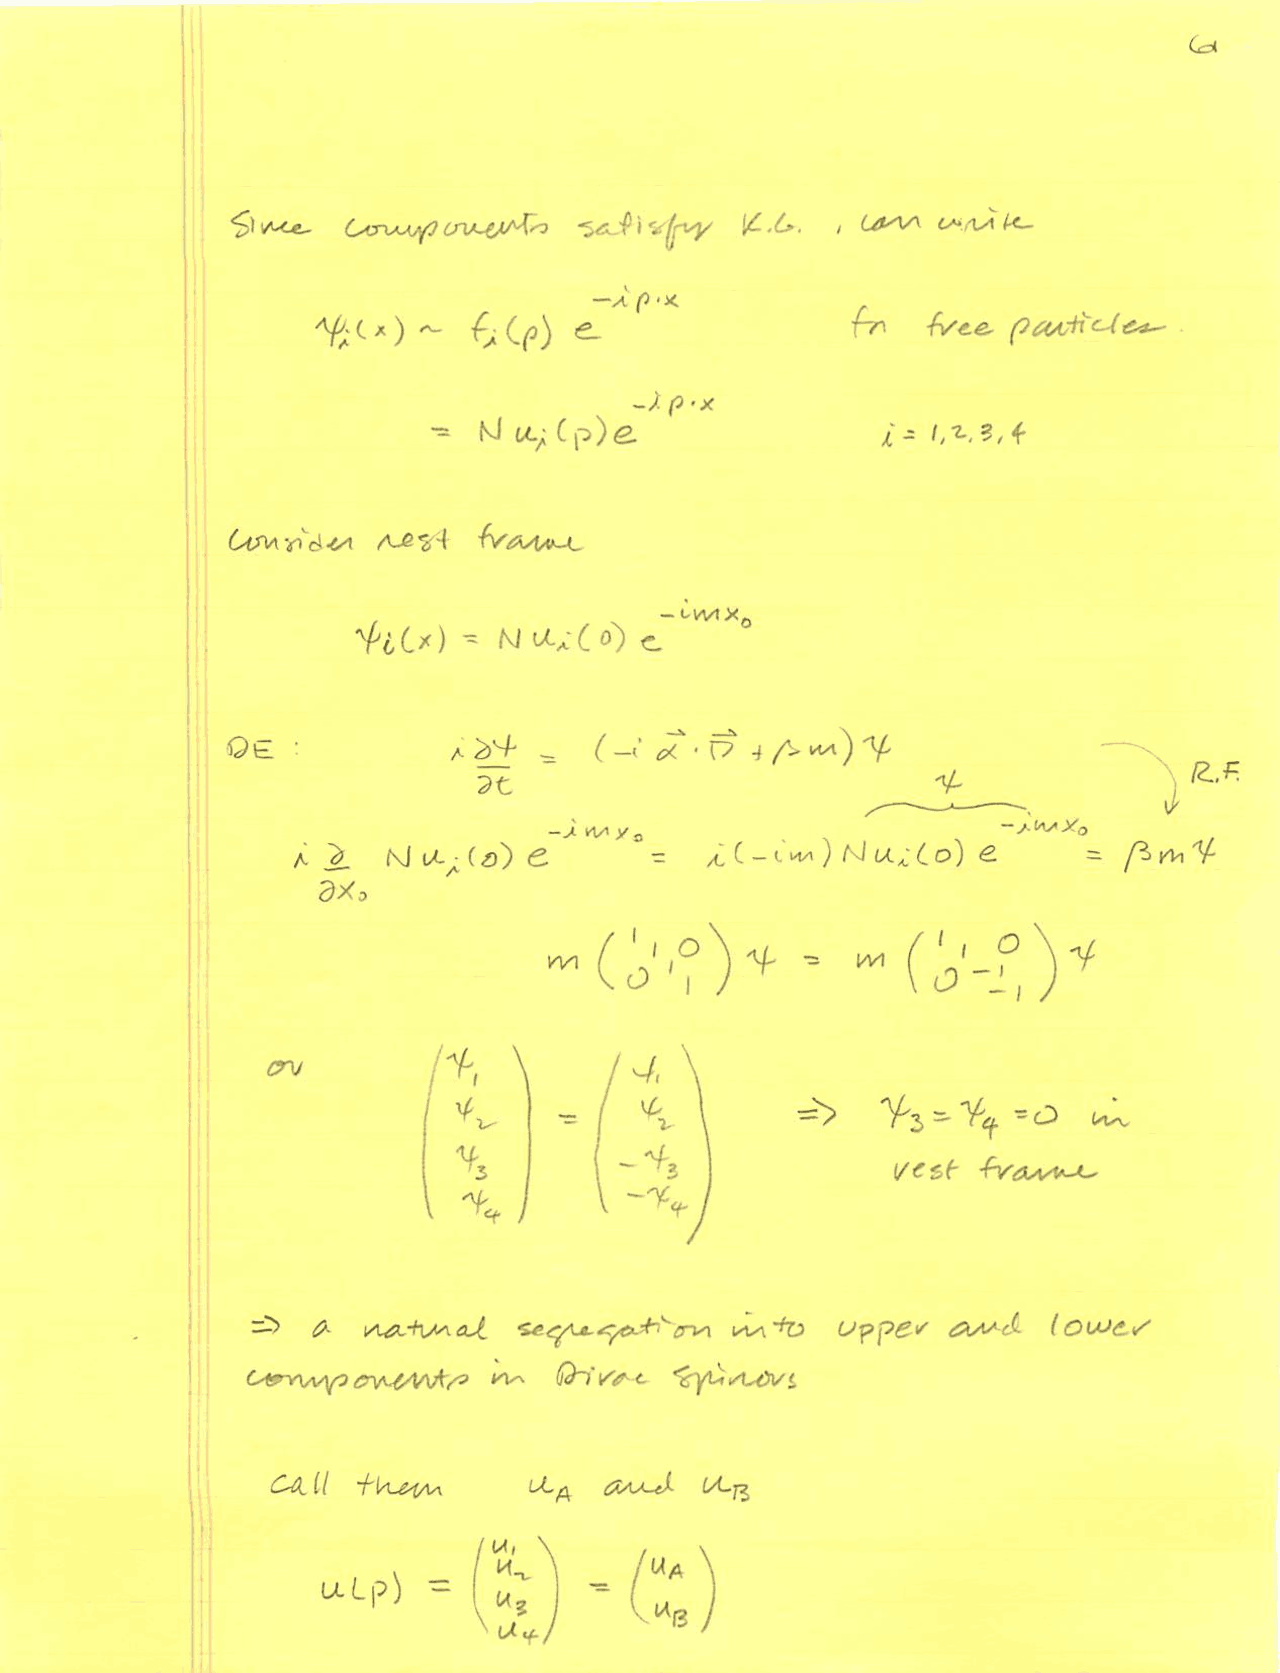 6
Since components satisfy K.G., can write
ψᵢ(x) ~ fᵢ(p) e^{-ip·x} for free particles.
= N uᵢ(p) e^{-ip·x} i = 1,2,3,4
Consider rest frame
ψᵢ(x) = N uᵢ(0) e^{-imx₀}
DE: i ∂ψ/∂t = (-i α⃗·∇⃗ + βm) ψ
ψ R.F.
i ∂/∂x₀ N uᵢ(0) e^{-imx₀} = i(-im) N uᵢ(0) e^{-imx₀} = βmψ
m (1 1 0 0 1 1) ψ = m (1 1 0 0 -1 -1) ψ
or (ψ₁ ψ₂ ψ₃ ψ₄) = (ψ₁ ψ₂ -ψ₃ -ψ₄) ⇒ ψ₃ = ψ₄ = 0 in
rest frame
⇒ a natural segregation into upper and lower
components in Dirac spinors
call them u_A and u_B
u(p) = (u₁ u₂ u₃ u₄) = (u_A u_B)